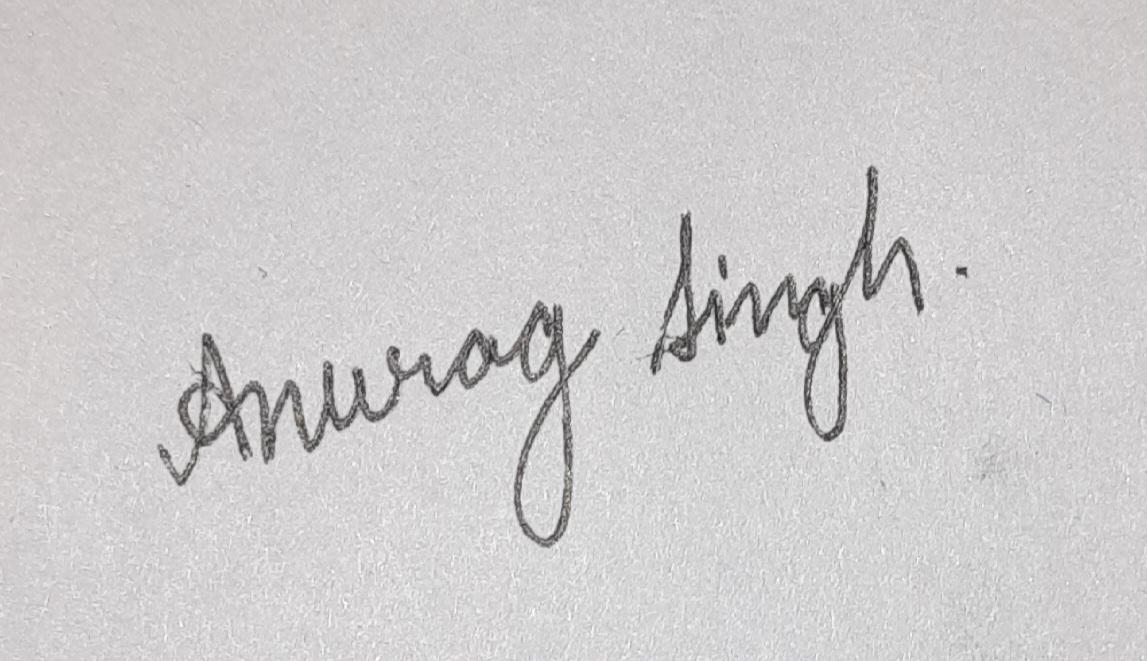 Anurag Singh.